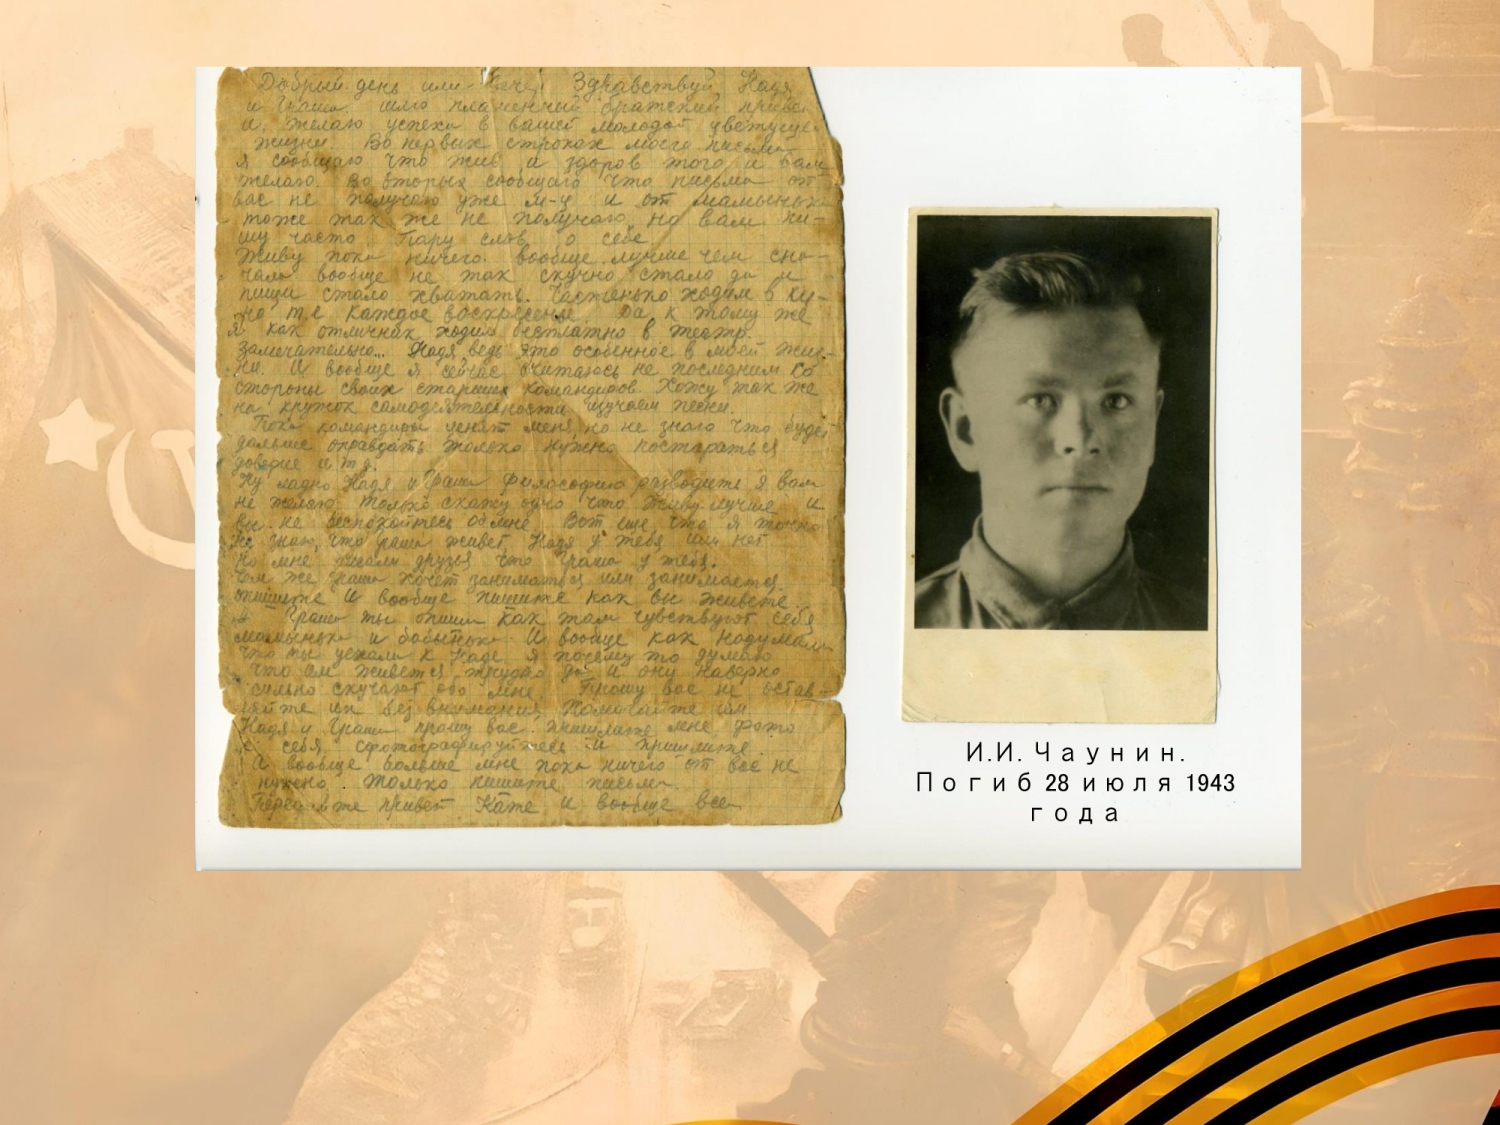 Добрый день или вечер Здравствуй Надя
и Граша. шлю пламенный братский привет
и желаю успеха в вашей молодой цветущей
жизни. Во первых строках моего письма
я сообщаю что жив и здоров того и вам
желаю. Во вторых сообщаю что письма от
вас не получаю уже м-ц и от мамыньки
тоже так же не получаю, но вам пи-
шу часто. Пару слов о себе
Живу пока ничего. вообще лучше чем сна-
чала вообще не так скучно стало да и
пищи стало хватать. Частенько ходим в ки-
но т.е. каждое воскресенье. Да к тому же
я как отличник ходил бесплатно в театр.
Замечательно... Надя, ведь это особенное в моей жиз-
ни. И вообще я сейчас считаюсь не последним со
стороны своих старших командиров. Хожу так же
на кружок самодеятельности изучаем песни.
Пока командиры ценят меня, но не знаю что будет
дальше оправдать только нужно постараться
доверие и т д.
Ну ладно Надя и Граша философию разводить я вам
не желаю. Только скажу одно что живу лучше и
вы не беспокойтесь обо мне. Вот еще что я точно
не знаю, что Граша живет, Надя у тебя или нет
но мне писали друзья что Граша у тебя.
Чем же Граша хочет заниматься или занимается
опишите И вообще пишите как вы живете.
А Граша ты опиши как там чувствуют себя
мамынька и бабынька И вообще как надумали
что ты уехала к Наде. я почему то думаю
что им живется трудно да и они наверно
сильно скучают обо мне. Прошу вас не остав-
ляйте их без внимания, Помогайте им
Надя и Граша прошу вас. пришлите мне фото
с себя. сфотографируйтесь и пришлите.
А вообще больше мне пока ничего от вас не
нужно. только пишите письма.
Передайте привет Кате и вообще всем
И.И. Чаунин.
Погиб 28 июля 1943
года